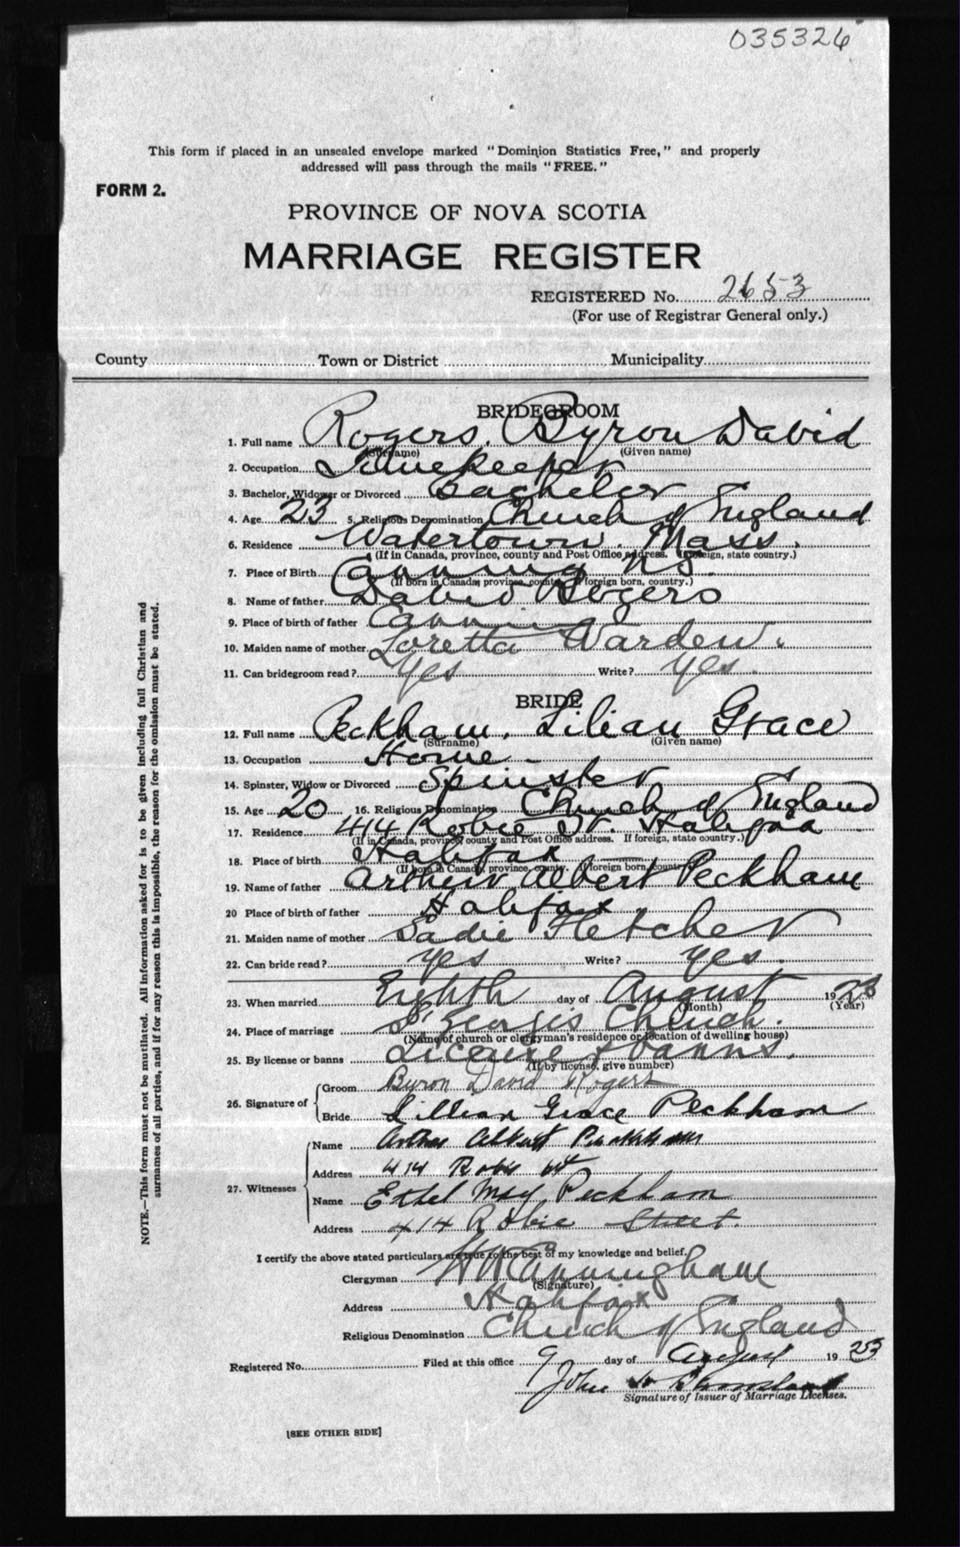 035326
This form if placed in an unsealed envelope marked "Dominion Statistics Free," and properly
addressed will pass through the mails "FREE."
FORM 2.
PROVINCE OF NOVA SCOTIA
MARRIAGE REGISTER
REGISTERED No. 2653
(For use of Registrar General only.)
County Town or District Municipality
BRIDEGROOM
1. Full name Rogers, Byron David
(Surname) (Given name)
2. Occupation Timekeeper
3. Bachelor, Widower or Divorced Bachelor
4. Age 23 5. Religious Denomination Church of England
6. Residence Watertown, Mass.
(If in Canada, province, county and Post Office address. If foreign, state country.)
7. Place of Birth Canning N.S.
(If born in Canada, province, county. If foreign born, country.)
8. Name of father David Rogers
9. Place of birth of father Canning
10. Maiden name of mother Loretta Warden.
11. Can bridegroom read? yes Write? yes.
BRIDE
12. Full name Peckham, Lilian Grace
(Surname) (Given name)
13. Occupation Home -
14. Spinster, Widow or Divorced Spinster
15. Age 20 16. Religious Denomination Church of England
17. Residence 414 Robie St. Halifax
(If in Canada, province, county and Post Office address. If foreign, state country.)
18. Place of birth Halifax
(If born in Canada, province, county. If foreign born, country.)
19. Name of father Arthur Albert Peckham
20 Place of birth of father Halifax
21. Maiden name of mother Sadie Fletcher
22. Can bride read? yes Write? yes.
23. When married Eighth day of August 1923
(Month) (Year)
24. Place of marriage St George's Church.
(Name of church or clergyman's residence or location of dwelling house)
25. By license or banns License & banns.
(If by license, give number)
26. Signature of Groom Byron David Rogers
Bride Lillian Grace Peckham
27. Witnesses
Name Arthur Albert Peckham
Address 414 Robie St
Name Ethel May Peckham
Address 414 Robie Street.
I certify the above stated particulars are true to the best of my knowledge and belief.
Clergyman H W Cunningham
(Signature)
Address Halifax
Religious Denomination Church of England
Registered No. Filed at this office 9 day of August 1923
John
Signature of Issuer of Marriage Licenses.
[SEE OTHER SIDE]
NOTE.—This form must not be mutilated. All information asked for is to be given including full Christian and
surnames of all parties, and if for any reason this is impossible, the reason for the omission must be stated.